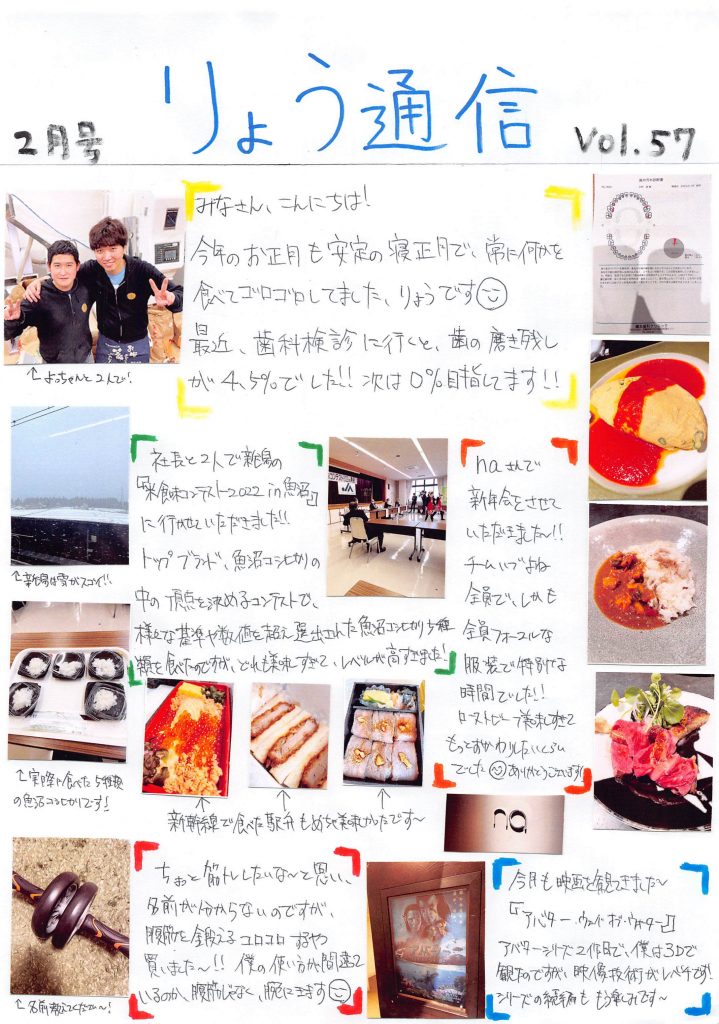 りょう通信
2月号
Vol.57
みなさん、こんにちは!
今年のお正月も安定の寝正月で、常に何かを
食べてゴロゴロしてました、りょうです
最近、歯科検診に行くと、歯の磨き残し
が4.5%でした!!次は0%目指してます!!
↑よっちゃんと2人で!
社長と2人で新潟の
『米食味コンテスト2022in魚沼』
に行かせていただきました!!
トップブランド、魚沼コシヒカリの
中の頂点を決めるコンテストで、
様々な基準や数値を超え選出された魚沼コシヒカリ5種
類を食べたのですが、どれも美味すぎて、レベルが高すぎました!
↑新潟は雪がスゴイ!!
↑実際に食べた5種類
の魚沼コシヒカリです!
新幹線で食べた駅弁もめちゃ美味しかったです〜
naさんで
新年会をさせて
いただきました〜!!
チームいづよね
全員で、しかも
全員フォーマルな
服装で特別な
時間でした!!
ローストビーフ美味すぎて
もっとおかわりしたいくらい
でした ありがとうございます!
na
ちょっと筋トレしたいな〜と思い、
名前が分からないのですが、
腹筋を鍛えるコロコロするやつ
買いました〜!!僕の使い方が間違って
いるのか、腹筋じゃなく、腕にきます
↑名前教えてくださ〜い!
今月も映画を観てきました〜
『アバター・ウェイ・オブ・ウォーター』
アバターシリーズ2作目で、僕は3Dで
観たのですが、映像技術がレベチです!
シリーズの続編も もう楽しみです〜